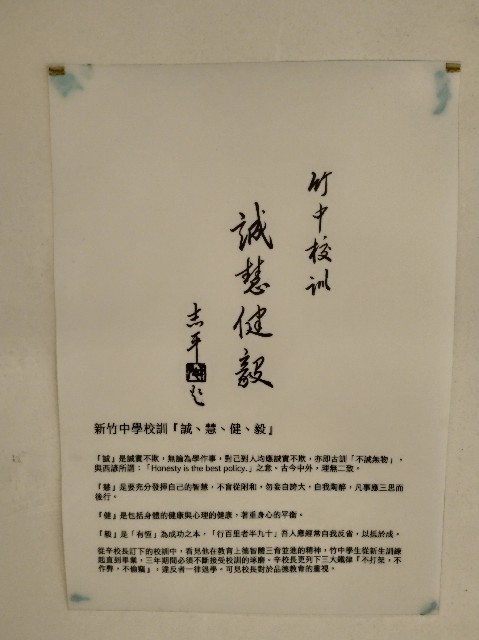 竹中校訓
誠慧健毅
志平題
新竹中學校訓『誠、慧、健、毅』
『誠』是誠實不欺，無論為學作事，對己對人均應誠實不欺，亦即古訓「不誠無物」，
與西諺所謂：「Honesty is the best policy.」之意。古今中外，理無二致。
『慧』是要充分發揮自己的智慧，不盲從附和，勿妄自誇大，自我陶醉，凡事應三思而
後行。
『健』是包括身體的健康與心理的健康，著重身心的平衡。
『毅』是「有恆」為成功之本，「行百里者半九十」吾人應經常自我反省，以抵於成。
從辛校長訂下的校訓中，看見他在教育上德智體三育並進的精神，竹中學生從新生訓練
起直到畢業，三年期間必須不斷接受校訓的琢磨。辛校長更列下三大鐵律『不打架，不
作弊，不偷竊』，違反者一律退學。可見校長對於品德教育的重視。